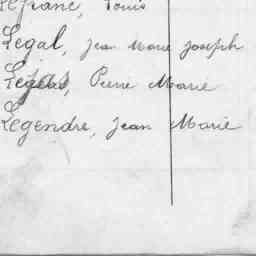 Lefranc, Louis
Legal, Jean Marie Joseph
Legars, Pierre Marie
Legendre, Jean Marie